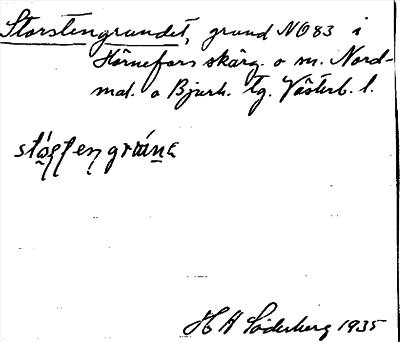 Storstengrundet, grund NO83 i
Hörnefors skärg. o sn. Nord-
mal. o Bjurh. tg. Västerb. l.
H A Söderberg 1935